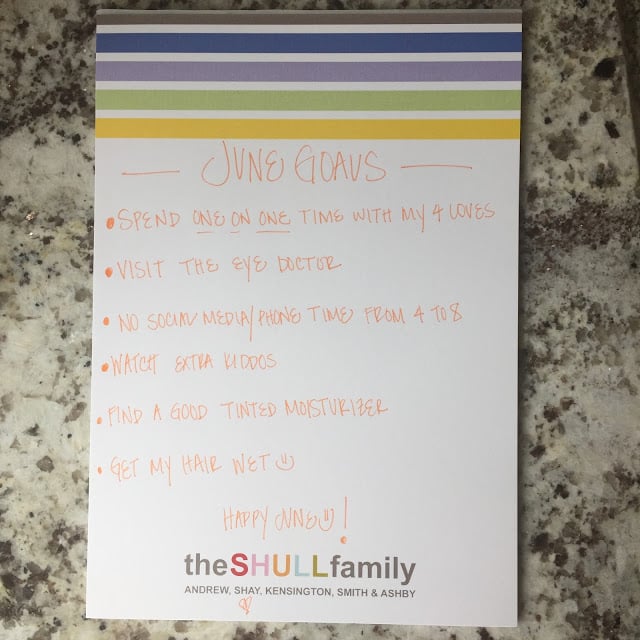 JUNE GOALS
• SPEND ONE ON ONE TIME WITH MY 4 LOVES
• VISIT THE EYE DOCTOR
• NO SOCIAL MEDIA/PHONE TIME FROM 4 TO 8
• WATCH EXTRA KIDDOS
• FIND A GOOD TINTED MOISTURIZER
• GET MY HAIR WET
HAPPY JUNE !
theSHULLfamily
ANDREW, SHAY, KENSINGTON, SMITH & ASHBY